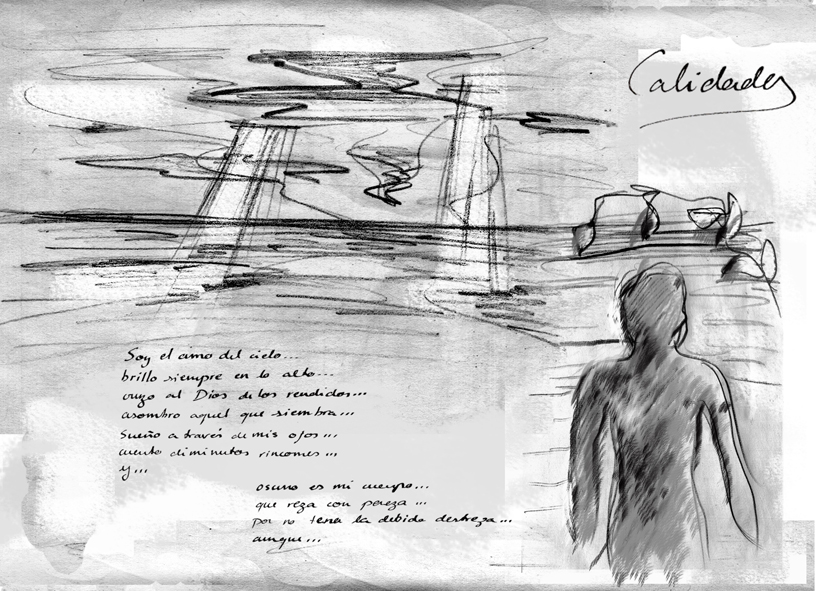 Calidades
Soy el amo del cielo...
brillo siempre en lo alto...
al Dios de los rendidos...
asombro aquel que siembra...
sueño a través de mis ojos...
cuento diminutos rincones...
y...
oscuro es mi cuerpo...
que reza con pereza...
por no tener la debida destreza...
aunque...